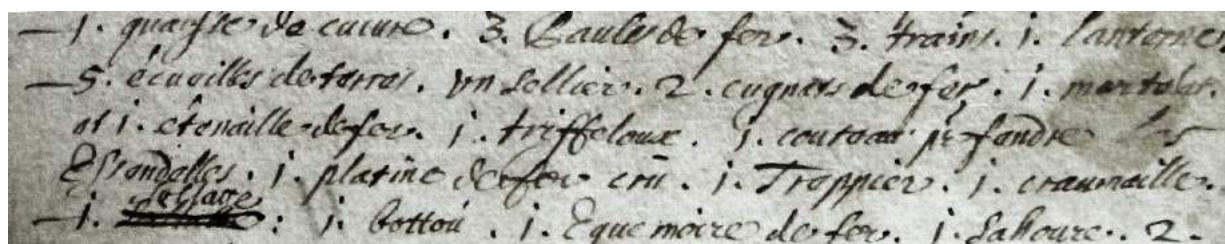 — 1. quaysse de cuivre. 3. Paules de fer. 3. trains. 1. lanterne
— 5. écuailles de terres. un sellier. 2. cugnars de fer. 1. martelet.
et 1. étenaille de fer. 1. triffeloux. 1. couteau pr fandre les
Esrondelles. 1. platine de fer crû. 1. Trappier. 1. craumaille.
— 1. : 1. bottoú. 1. Equemoire de fer. 1. Saltoure. 2.